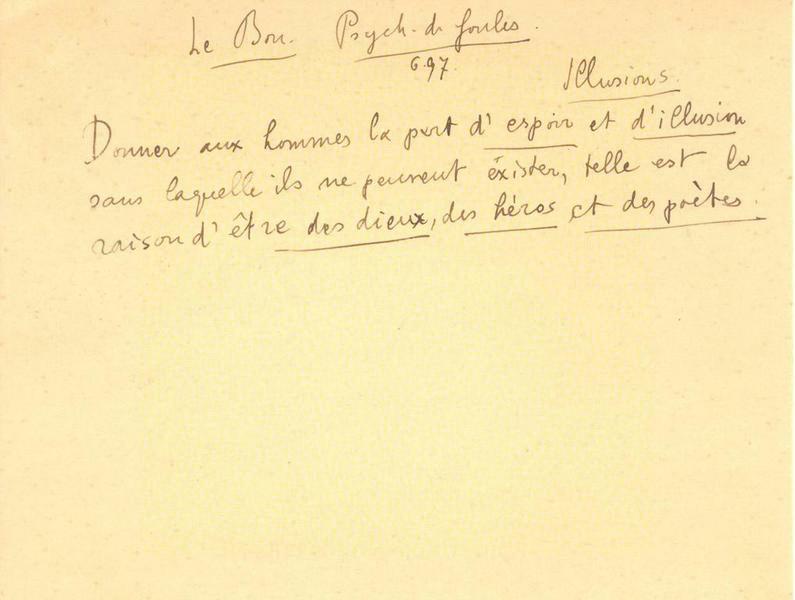 Le Bon. Psych. d. foules.
6.97.
Illusions.
Donner aux hommes la part d'espoir et d'illusion
sans laquelle ils ne peuvent éxister, telle est la
raison d'être des dieux, des héros et des poètes.